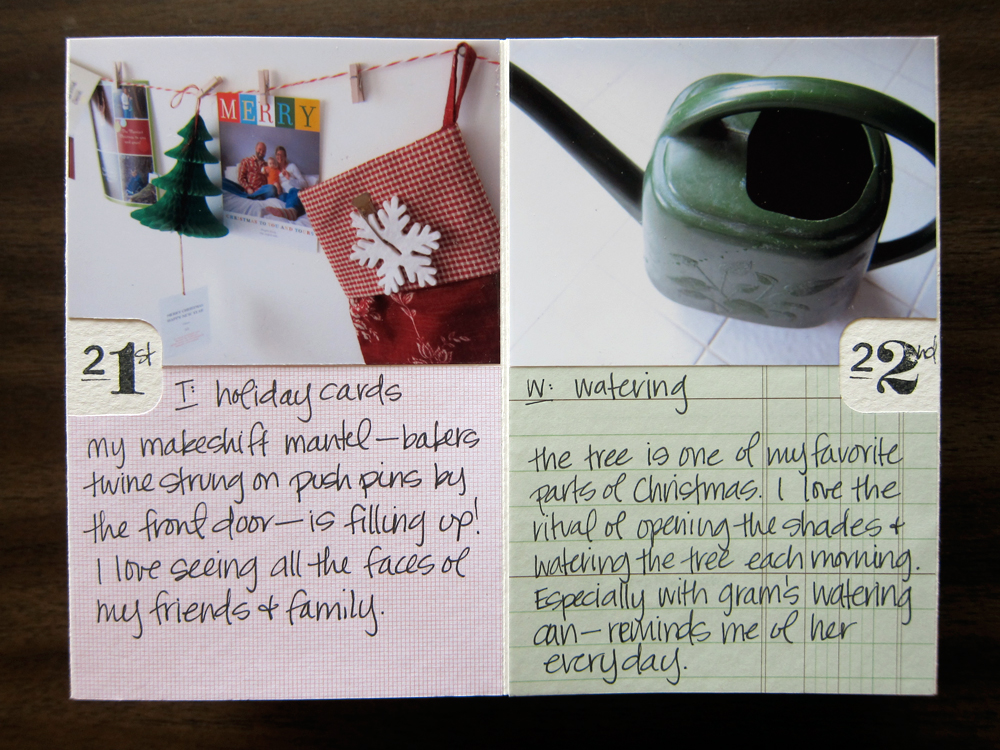 MERRY
CHRISTMAS
21st
T: holiday cards
my makeshift mantel—bakers
twine strung on push pins by
the front door—is filling up!
I love seeing all the faces of
my friends & family.
22nd
W: watering
the tree is one of my favorite
parts of Christmas. I love the
ritual of opening the shades &
watering the tree each morning.
Especially with gram's watering
can—reminds me of her
everyday.